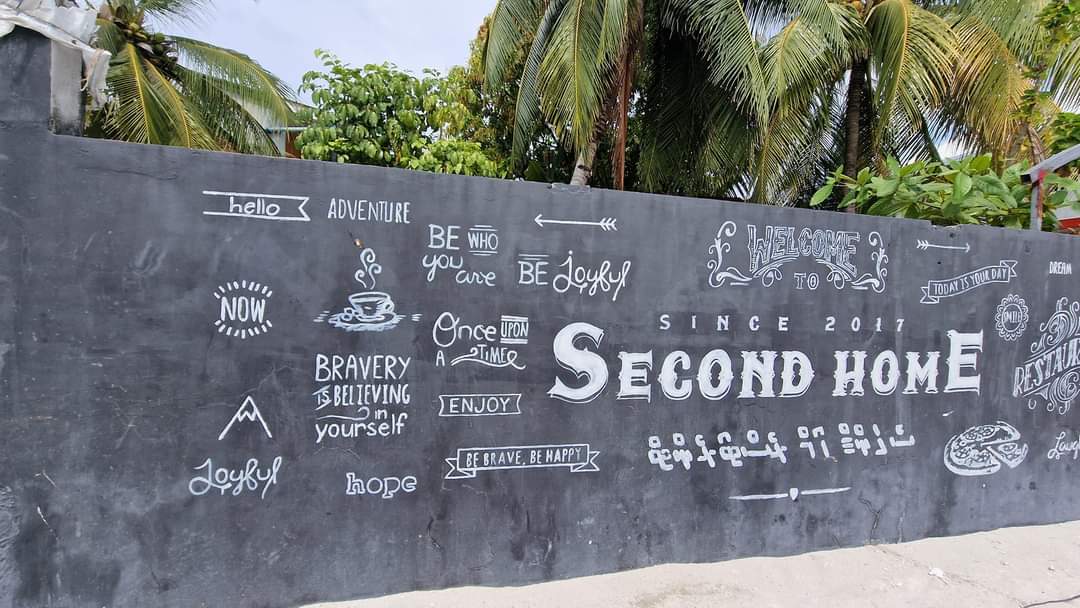 hello
ADVENTURE
BE WHO
you are
BE Joyful
NOW
Once UPON
A TIME
BRAVERY
IS BELIEVING
in
yourself
ENJOY
Joyful
hope
BE BRAVE, BE HAPPY
WELCOME
TO
SINCE 2017
SECOND HOME
TODAY IS YOUR DAY
DREAM
SMILE